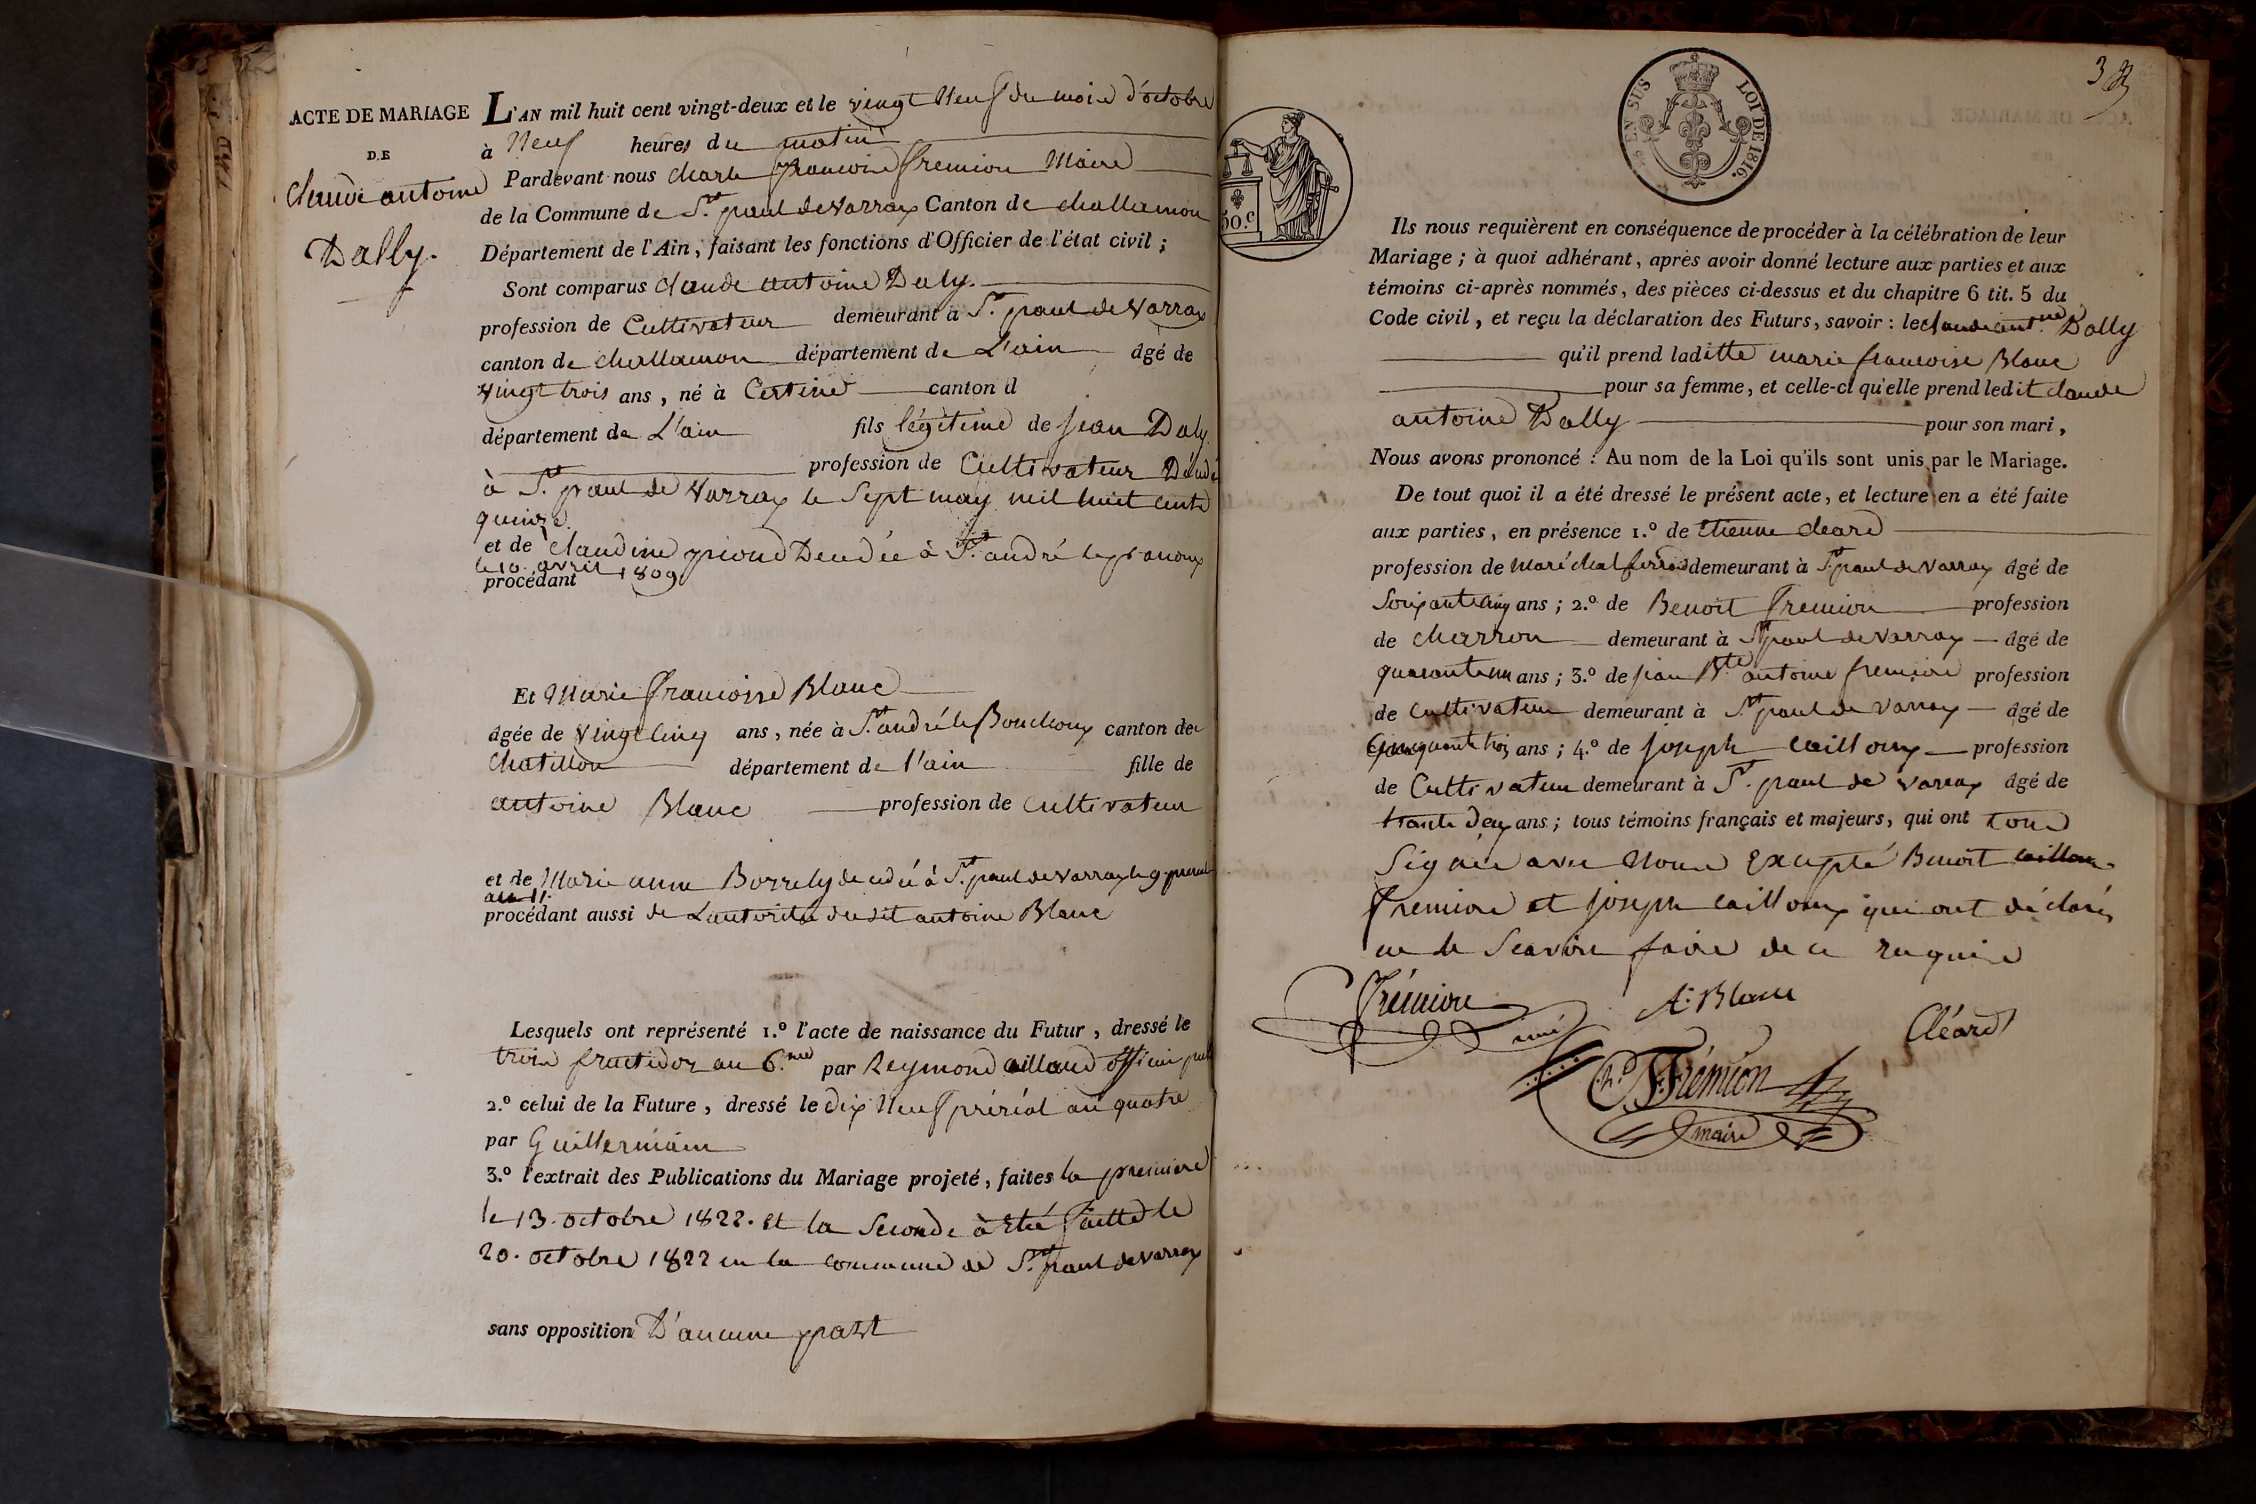 ACTE DE MARIAGE
DE
Claude antoine
Dally.
L'AN mil huit cent vingt-deux et le vingt Neuf du mois d'octobre
à Neuf heures du matin
Pardevant nous Charle francoise fremion Maire
de la Commune de St. paul de Varrax Canton de challamon
Département de l'Ain, faisant les fonctions d'Officier de l'état civil ;
Sont comparus Claude antoine Daly.
profession de Cultivateur demeurant à St. paul de Varrax
canton de challamon département de L'ain âgé de
vingt trois ans, né à Certine canton d
département de L'ain fils légitime de jean Daly
profession de Cultivateur Décédé
à St. paul de Varrax le Sept may mil huit cents
quinze.
et de Claudine Decedée à St. andré
le 10. avril 1809
procédant
Et Marie francoise Blanc
âgée de vingt cinq ans, née à St. andré le Bouchoux canton de
Chatillon département de l'ain fille de
antoine Blanc profession de Cultivateur
et de Marie anne Borrely decedée à St. paul de Varrax le 9
an 11.
procédant aussi de L'autorité dudit antoine Blanc
Lesquels ont représenté 1.º l'acte de naissance du Futur, dressé le
trois fructidor an 6.me par Reymond officier
2.º celui de la Future, dressé le dix Neuf préréal an quatre
par Guillermain
3.º l'extrait des Publications du Mariage projeté, faites la premiere
le 13. octobre 1822. et la Seconde à Eté faitte le
20. octobre 1822 en la commune de St. paul de Varrax
sans opposition D'aucune part
38
EN SUS
LOI DE 1816.
50.c
Ils nous requièrent en conséquence de procéder à la célébration de leur
Mariage ; à quoi adhérant, après avoir donné lecture aux parties et aux
témoins ci-après nommés, des pièces ci-dessus et du chapitre 6 tit. 5 du
Code civil, et reçu la déclaration des Futurs, savoir : le claude antne. Dally
qu'il prend laditte marie francoise Blanc
pour sa femme, et celle-ci qu'elle prend ledit claude
antoine Dally pour son mari,
Nous avons prononcé : Au nom de la Loi qu'ils sont unis par le Mariage.
De tout quoi il a été dressé le présent acte, et lecture en a été faite
aux parties, en présence 1.º de Etienne cleard
profession de Maréchal ferrand demeurant à St. paul de Varrax âgé de
Soixante cinq ans ; 2.º de Benoit fremion profession
de charron demeurant à St paul de Varrax âgé de
quarante un ans ; 3.º de jean Bte antoine fremion profession
de Cultivateur demeurant à St paul de Varrax âgé de
Cinquante trois ans ; 4.º de joseph cailloux profession
de Cultivateur demeurant à St. paul de Varrax âgé de
trante deux ans ; tous témoins français et majeurs, qui ont tous
Signée avec Nous Excepté Benoit cailloux
fremion et joseph cailloux qui ont déclarés
ne le Scavoir faire de ce requis
Frémion
A. Blanc
Cléard
ch. F. Frémion
maire